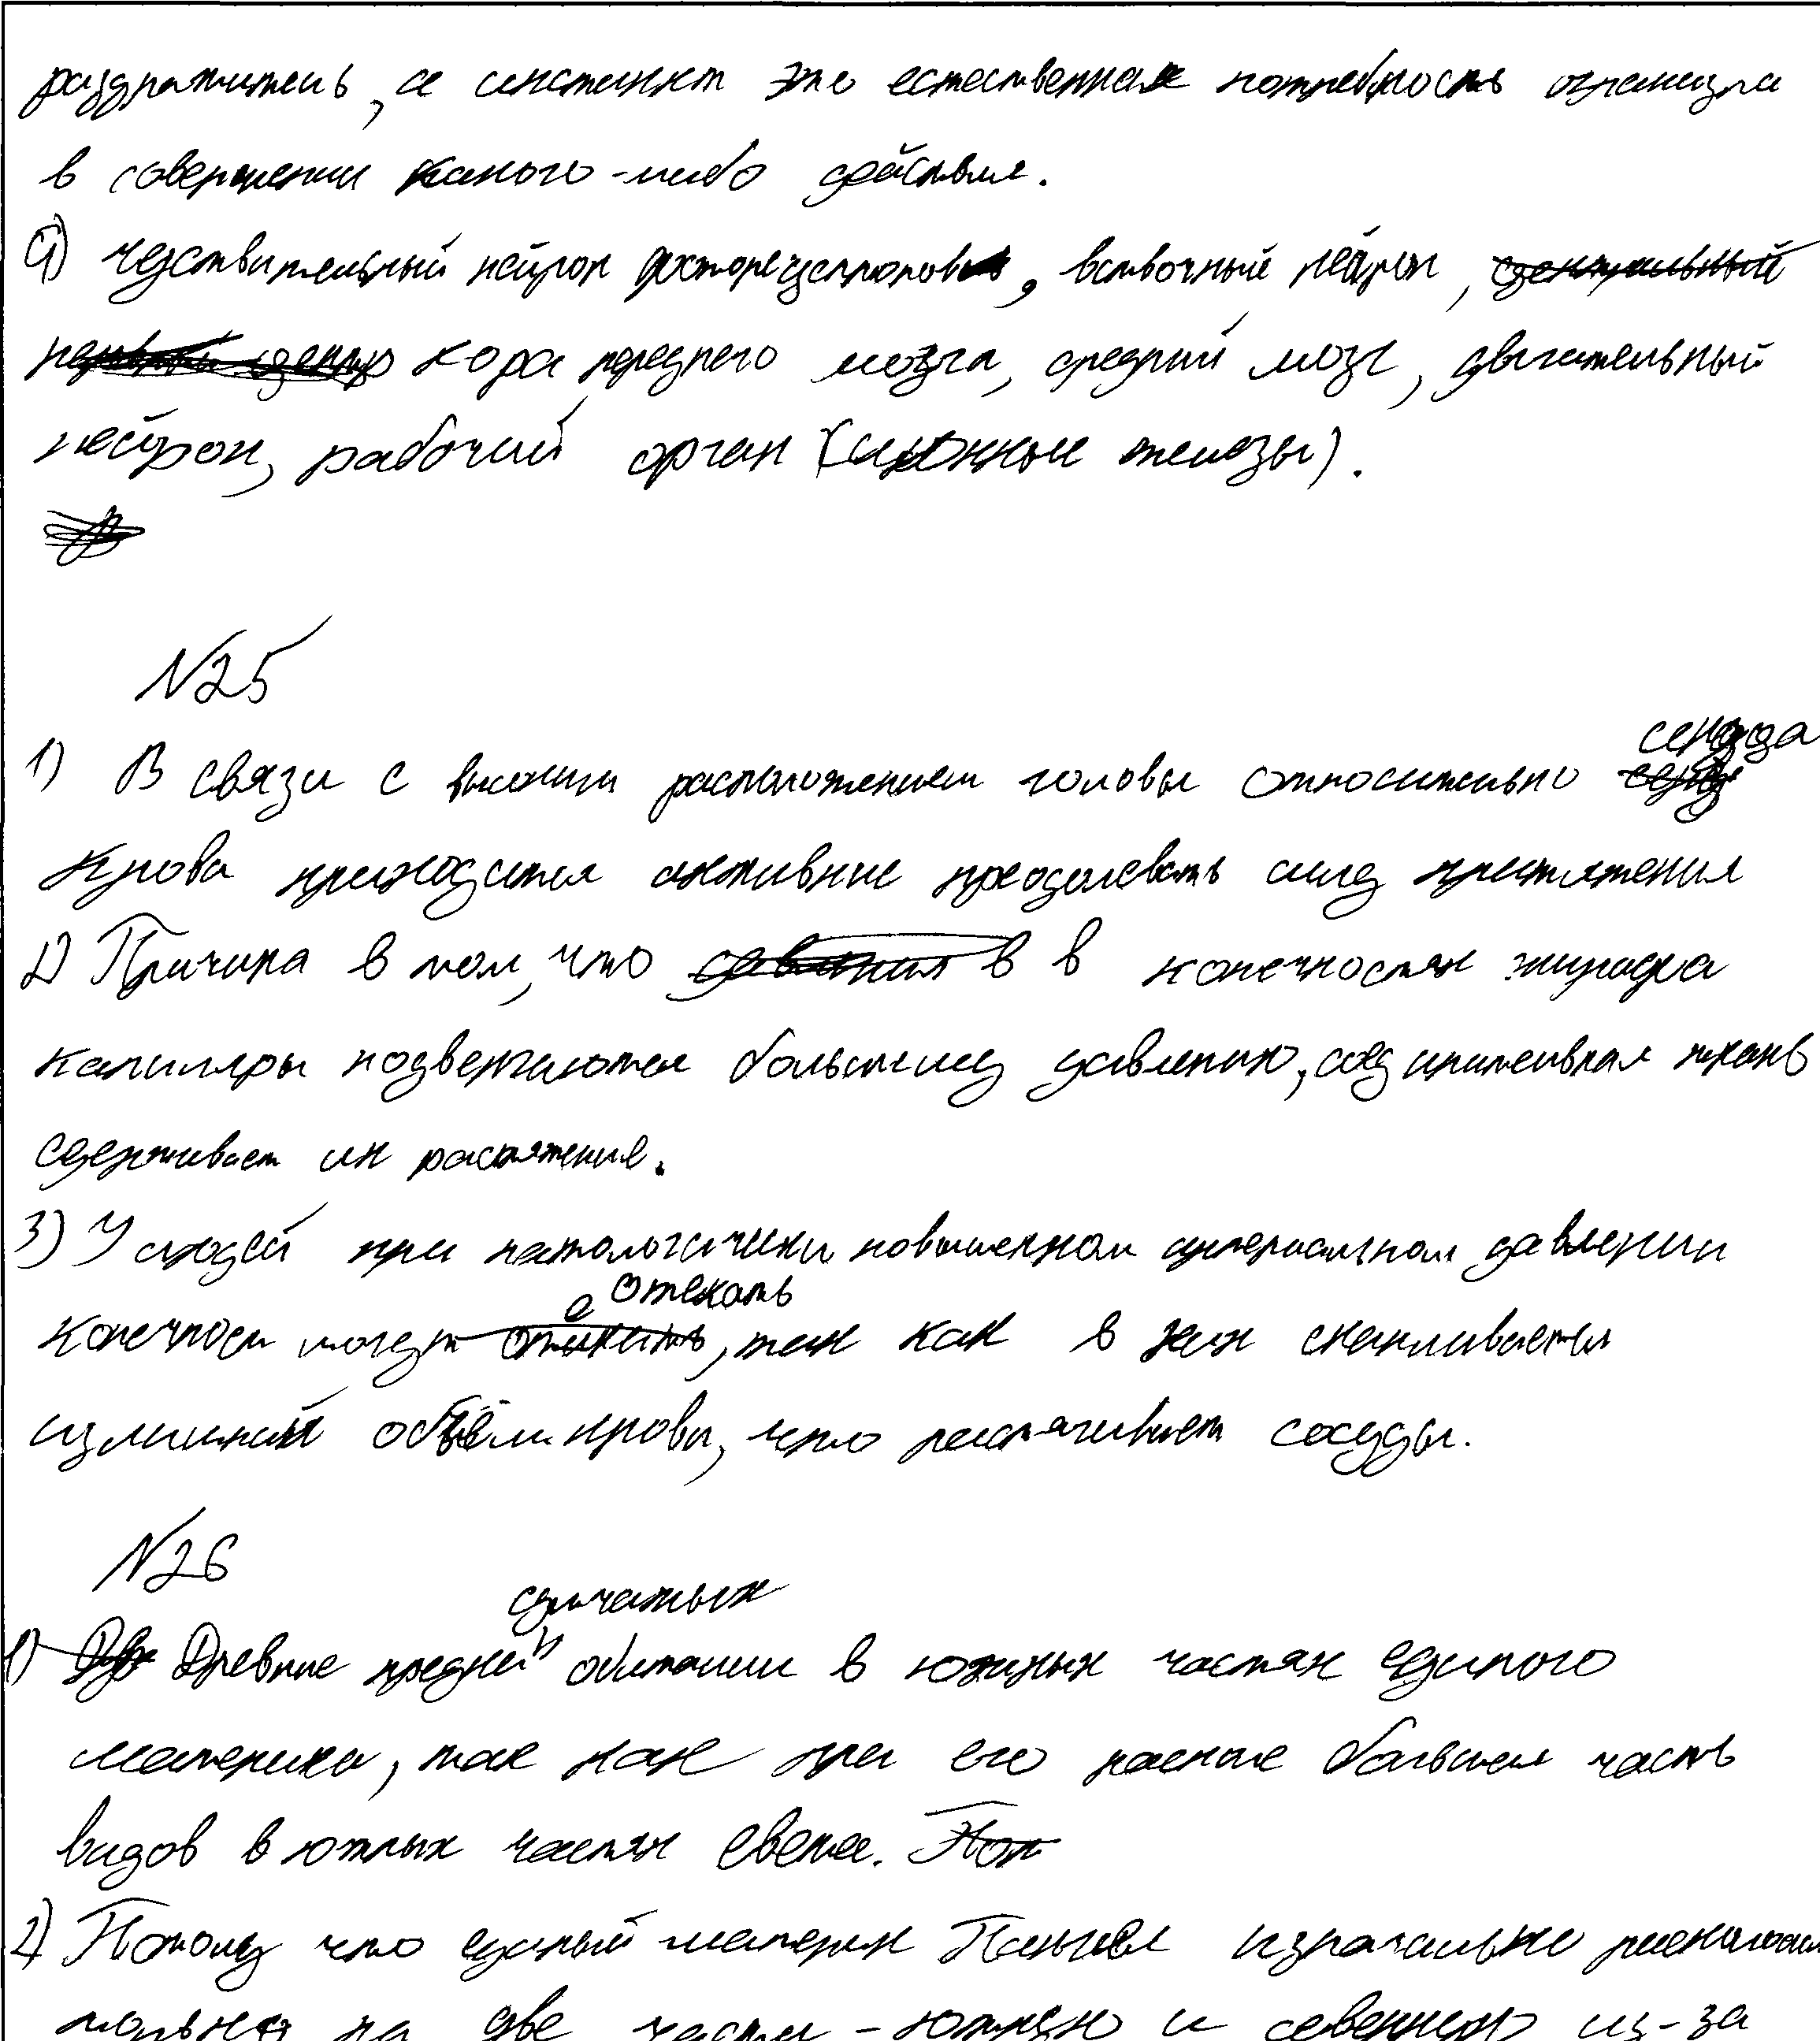 раздражитель, а инстинкт это естественная потребность организма
в совершении какого-либо действия.
4) чуствительный нейрон фоторецепторов, вствочный нейрон,
кора переднего мозга, средний мозг, двигательный
нейрон, рабочий орган (слюнные железы).
N25
1) В связи с высоким расположением головы относительно сердца
крови приходится активнее преодолевать силу притяжения
2) Причина в том, что в в конечностях жирафа
капилляры подвергаются большему давлению, соединительная ткань
сдерживает их растяжение.
3) У людей при патологически повышенном артериальном давлении
могут отекать, так как в них скапливается
излишний объём крови, что растягивает сосуды.
N26
1) Древние предки сумчатых обитали в южных частях единого
материка, так как при его большая часть
видов в южных частях света.
2) Потому что единый материк Пангея изначально
на две части - южную и северную из-за